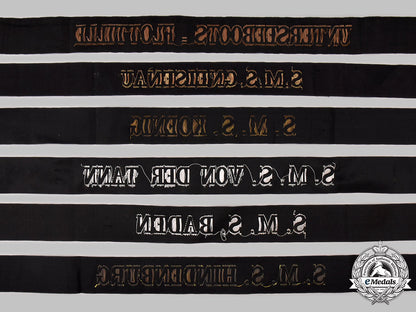 UNTERSEEBOOTS = FLOTTILLE
S.M.S. GNEISENAU
S. M. S. KOENIG
S. M. S. VON DER TANN
S. M. S. BADEN
S. M. S. HINDENBURG
eMedals